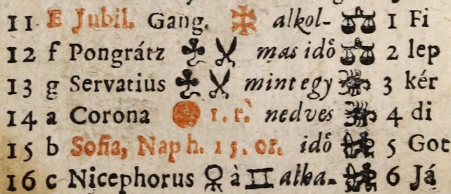 11 E Jubil. Gang. alkol- ♎ 1 Fi
12 f Pongrátz mas idő ♎ 2 lep
13 g Servatius mint egy ♏ 3 kér
14 a Corona 1. r. nedves ♏ 4 di
15 b Sofia, Nap h. 15. or. idő ♐ 5 Got
16 c Nicephorus ♀ à ♊ alka- ♐ 6 Já